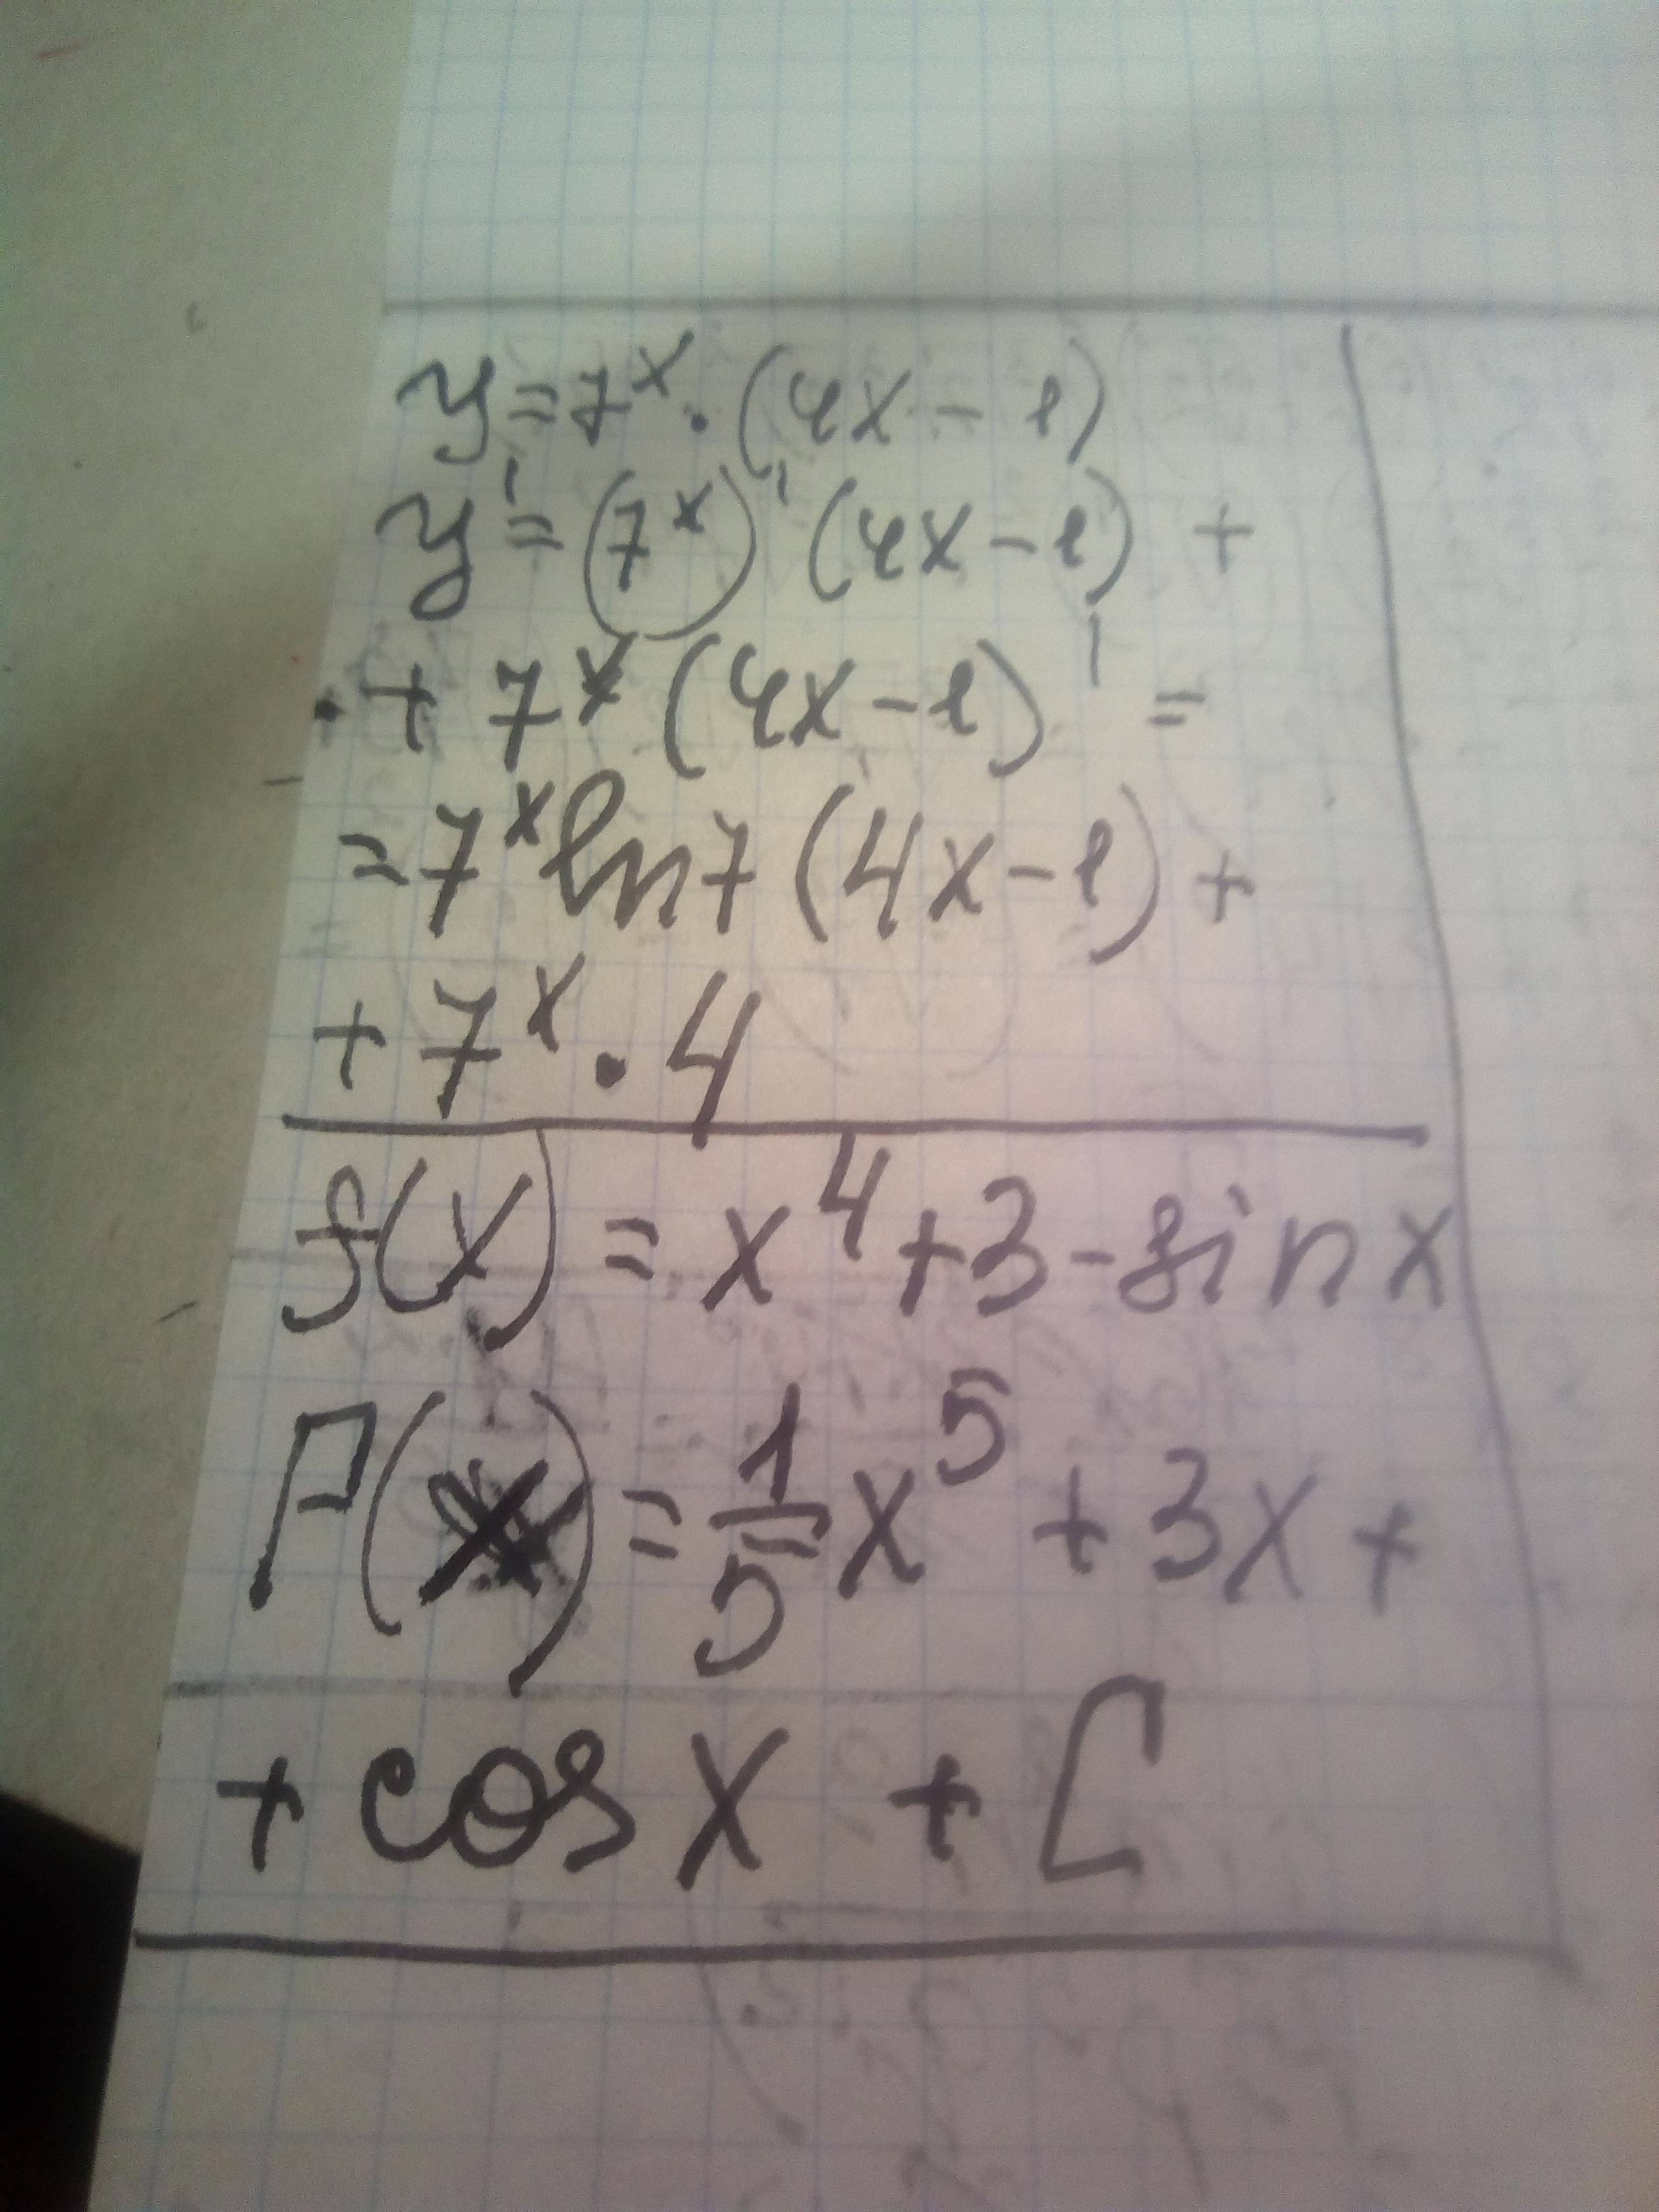 y = 7ˣ · (4x - 1)
y' = (7ˣ)' (4x - 1) +
+ 7ˣ (4x - 1)' =
= 7ˣ ln 7 (4x - 1) +
+ 7ˣ · 4
f(x) = x⁴ + 3 - sin x
F(x) = 1/5 x⁵ + 3x +
+ cos x + C